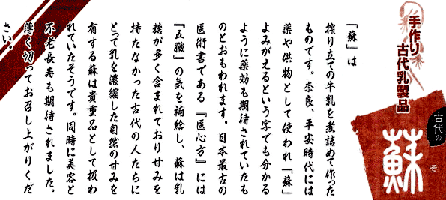 手作り
古代乳製品
古代の
蘇
そ
「蘇」は
搾り立ての牛乳を煮詰めて作った
ものです。奈良、平安時代には
薬や供物として使われ「蘇」
よみがえるという字でも分かる
ように薬効も期待されていたも
のとおもわれます。日本最古の
医術書である『医心方』には
『五臓』の気を補給し、蘇は乳
糖が多く含まれており甘みを
持たなかった古代の人たちに
とって乳を濃縮した自然の甘みを
有する蘇は貴重品として扱わ
れていたそうです。同時に美容と
不老長寿も期待されました。
薄く切ってお召し上がりくだ
さい。